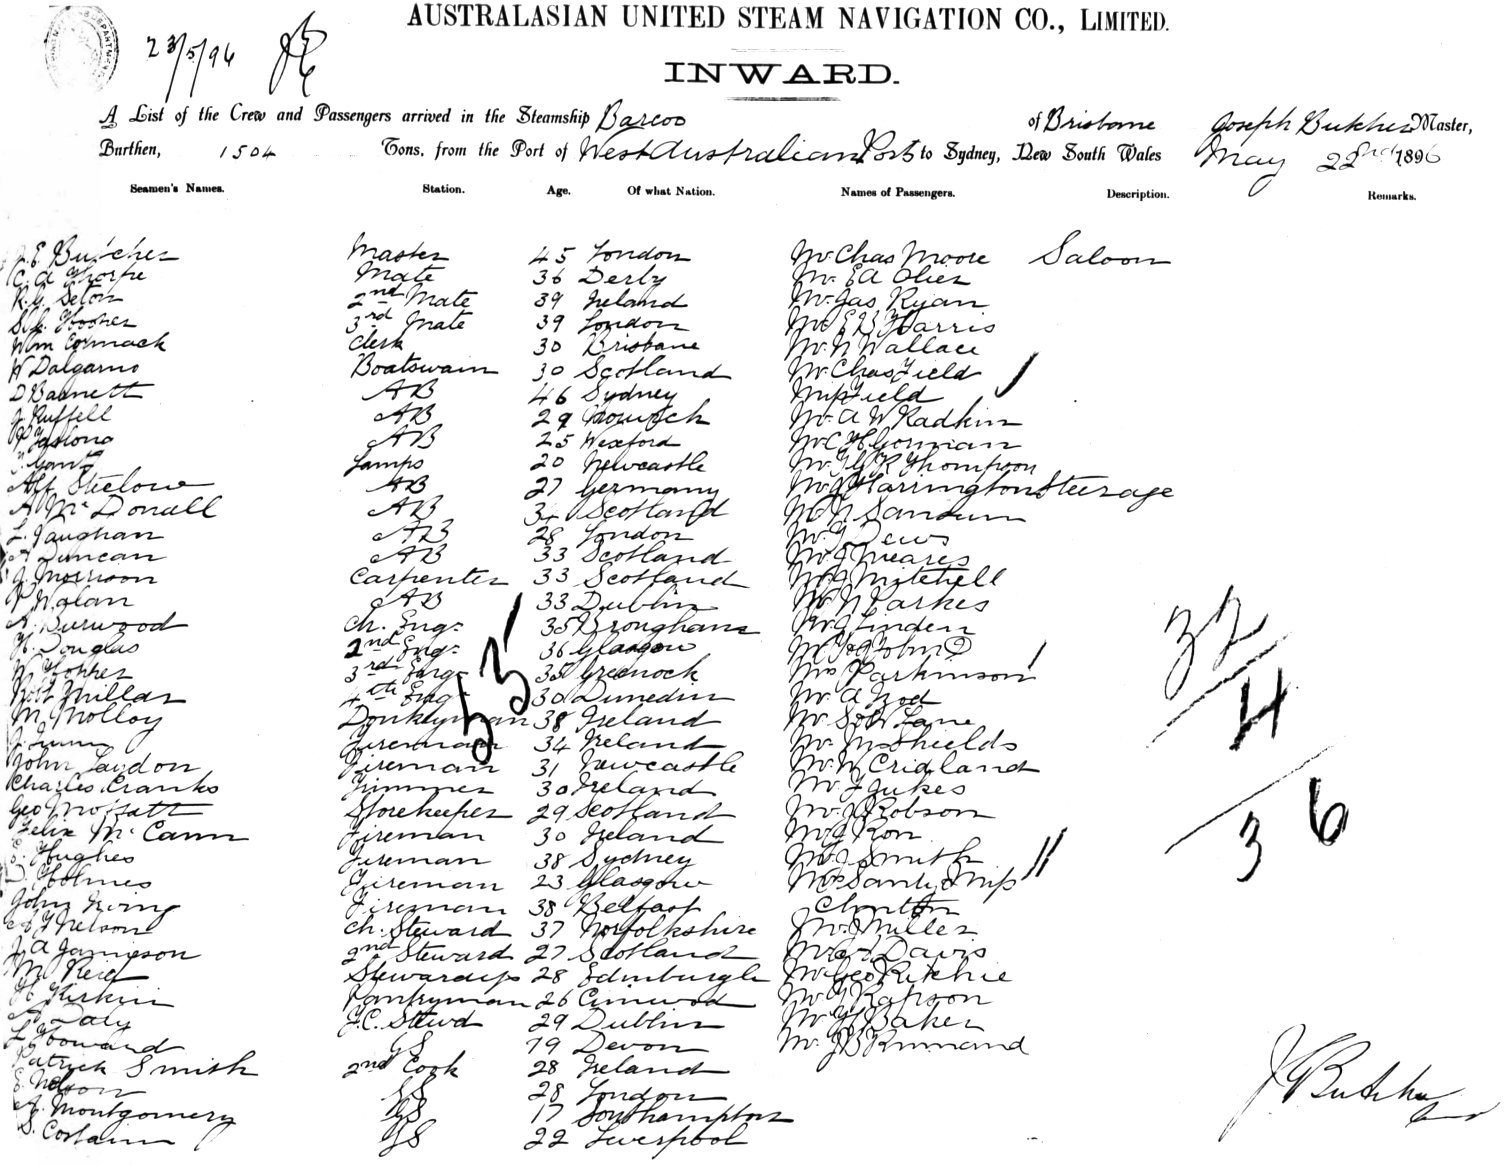 23/5/96
AUSTRALASIAN UNITED STEAM NAVIGATION CO., LIMITED.
INWARD.
A List of the Crew and Passengers arrived in the Steamship Barcoo of Brisbane Joseph Butcher Master,
Burthen, 1504 Tons, from the Port of West Australian Ports to Sydney, New South Wales May 22nd 1896
Seamen's Names. Station. Age. Of what Nation. Names of Passengers. Description. Remarks.
J.E. Butcher Master 45 London Mr Chas Moore Saloon
C. A Thorpe Mate 36 Derby Mr. E A
R. G. Seton 2nd Mate 39 Ireland Mr. Jas Ryan
Hooker 3rd Mate 39 London Mr. Harris
Wm Cormack Clerk 30 Brisbane Mr. N Wallace
W Dalgarno Boatswain 30 Scotland Mr Chas Field
D Barnett AB 46 Sydney Miss Field
J. Ruffell AB 29 Norwich Mr. A W Radkin
AB 25 Wexford Mr. C H Gorman
Lamps 20 Newcastle Mr. Thompson
Alf AB 27 Germany Mr. J Harrington Steerage
A McDonall AB 34 Scotland Mr N
L. Vaughan AB 28 London Mr. J Dews
A Duncan AB 33 Scotland Mr. J Meares
J. Morrison Carpenter 33 Scotland Mr J Mitchell
P Nolan AB 33 Dublin Mr. N Parkes
A. Burwood Ch. Engr 35 Mr J Linden
H. Douglas 2nd Engr 36 Glasgow
W. Hopper 3rd Engr 35 Greenock Mrs Parkinson
Robt Millar 4th Engr 30 Dunedin Mr. A Nod
M. Molloy Donkeyman 38 Ireland Mr. Lane
J. Fireman 34 Ireland Mr. McShields
John Laydon Fireman 31 Newcastle Mr. W Cridland
Charles Cranks Trimmer 30 Ireland Mr. F Jukes
Geo Moffatt Storekeeper 29 Scotland Mr. J Robson
Felix McCann Fireman 30 Ireland Mr. J Kon
E. Hughes Fireman 38 Sydney Mr. Smith
D. Holmes Fireman 23 Glasgow & Miss
John Fireman 38 Belfast Clinton
A J Nelson Ch. Steward 37 Norfolkshire Mr. J Miller
J. A Jamieson 2nd Steward 27 Scotland Davis
M. Reid Stewardess 28 Edinburgh Mr. Geo Ritchie
H Firkin Pantryman 26 Mr. G Rapson
A Daly F.C. Stewd 29 Dublin Mr. H Baker
L Howard GS 19 Devon Mr. J B
Patrick Smith 2nd Cook 28 Ireland
E Nelson GS 28 London
A. Montgomery GS 17 Southampton
S. Costain GS 22 Liverpool
53
32
4
36
J E Butcher